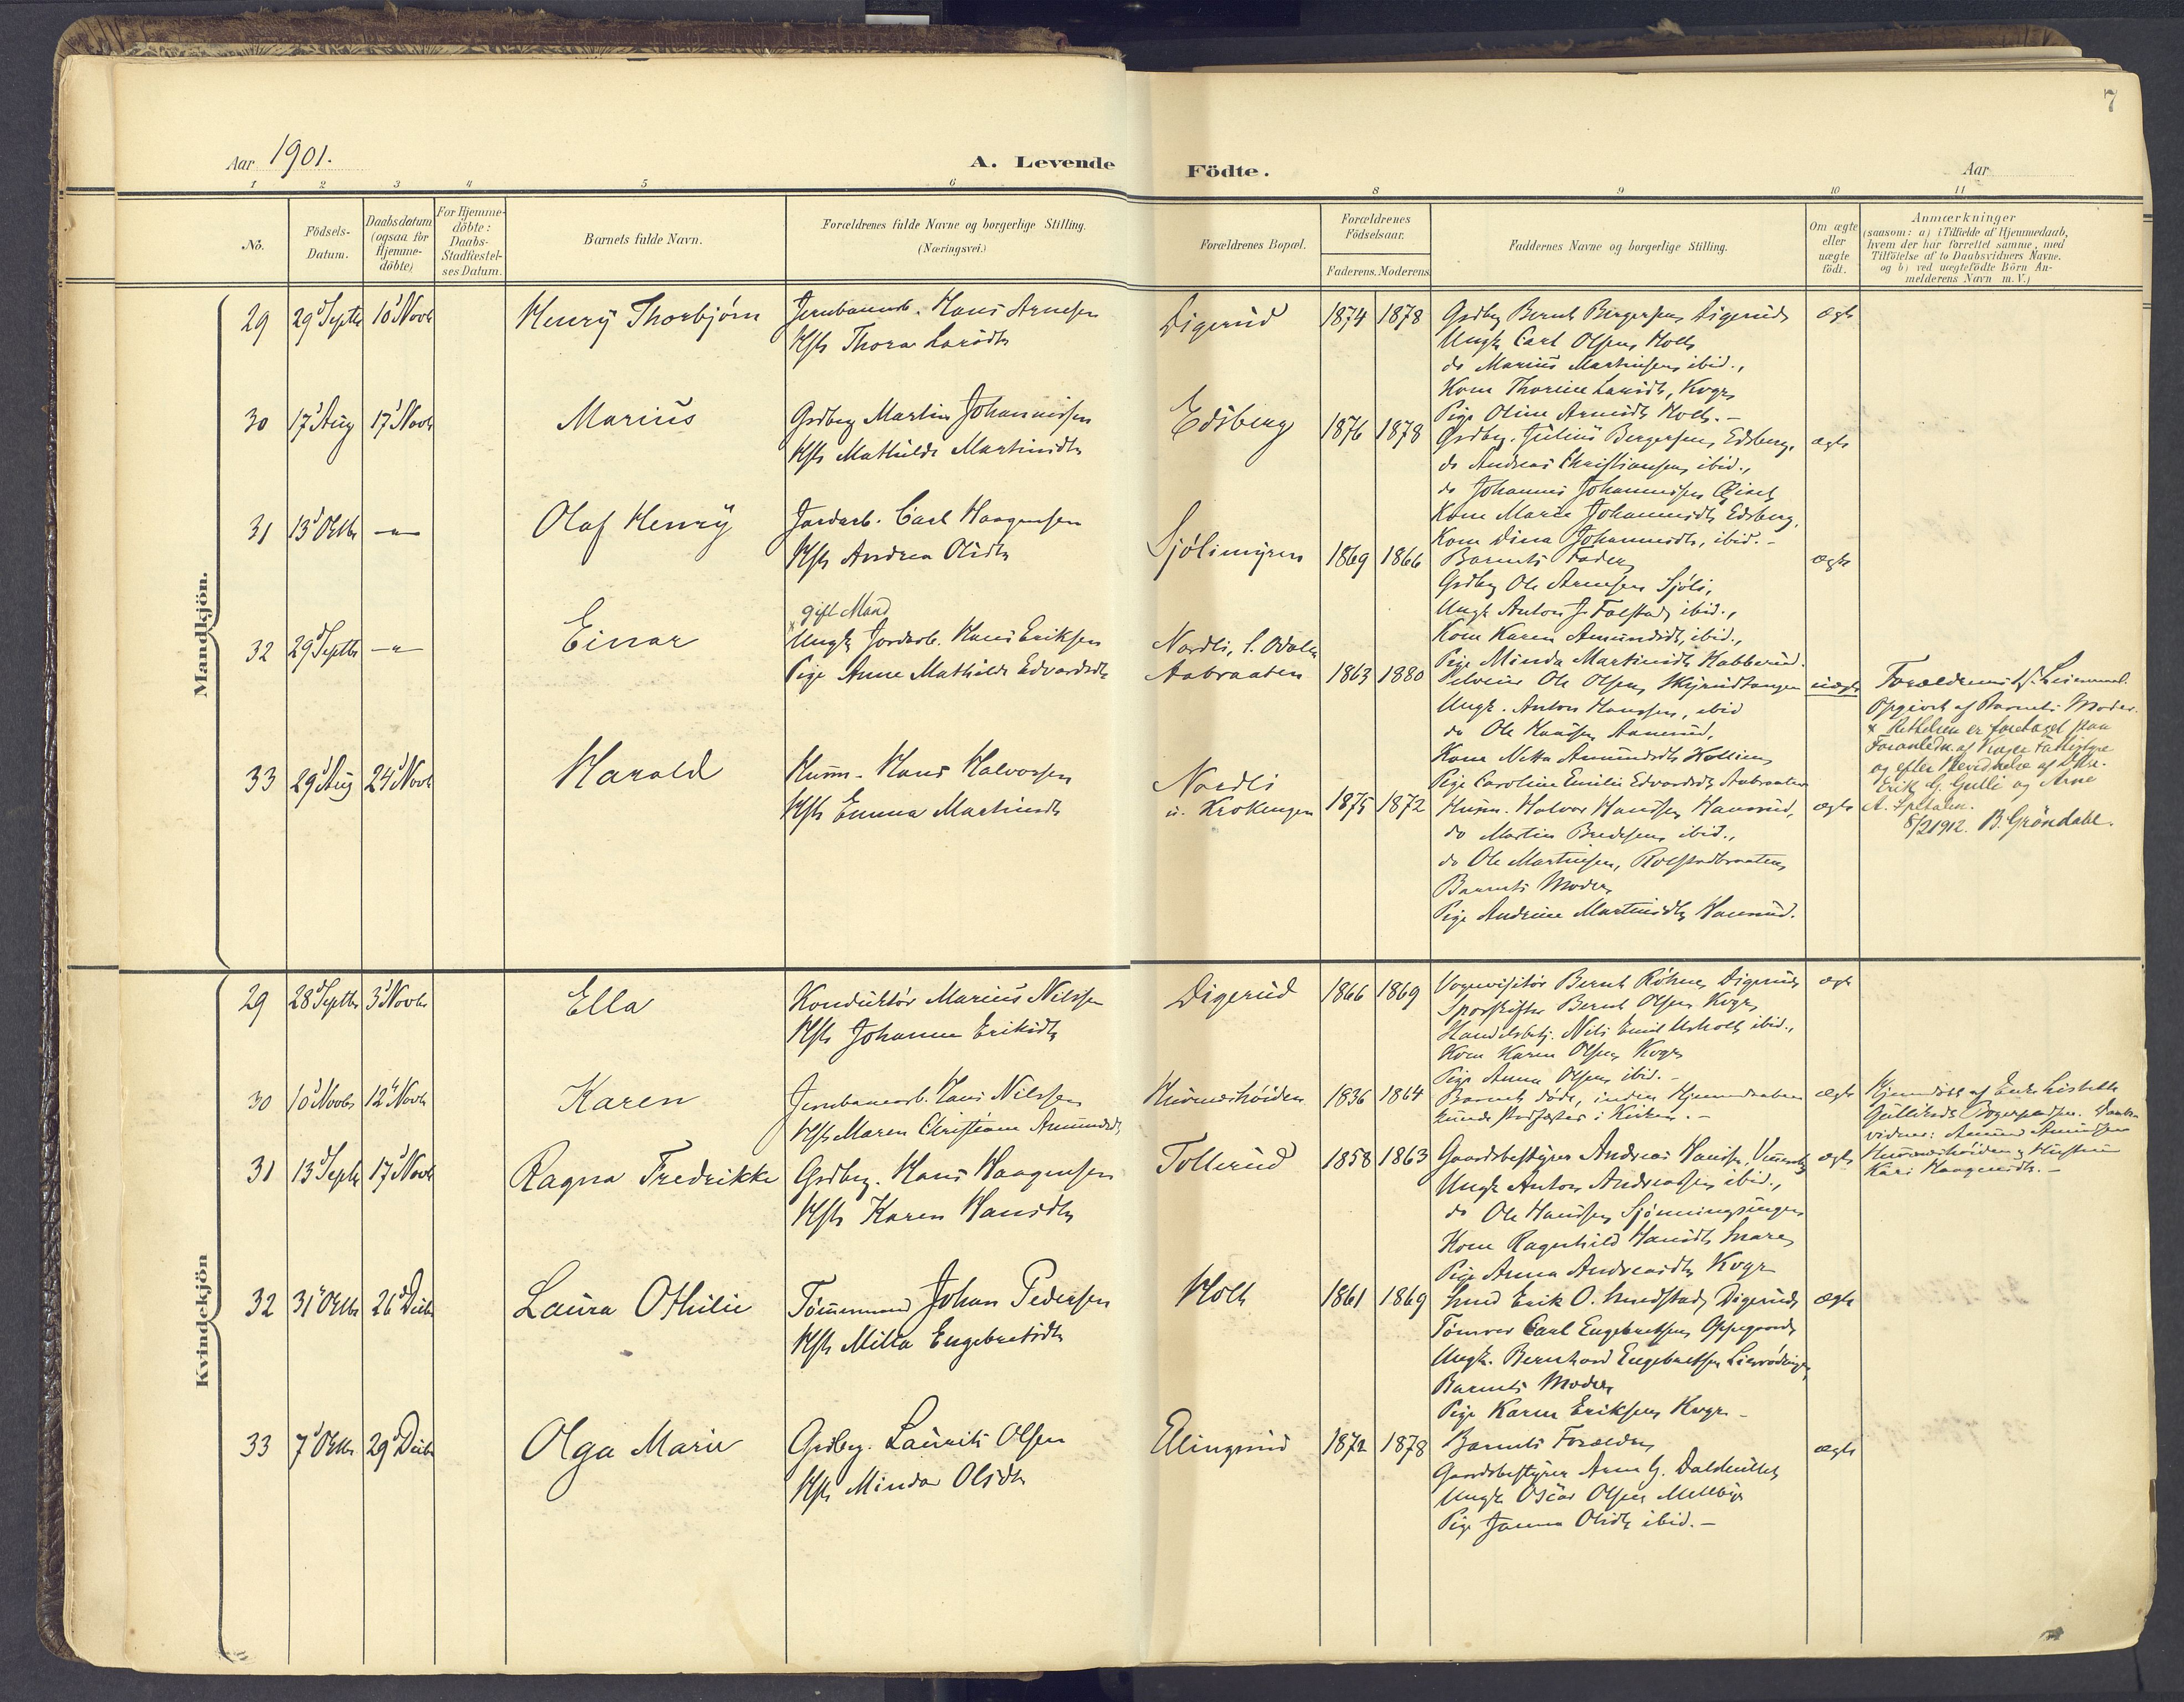 7
Aar 1901.
A. Levende
Födte.
Aar
1 2 3 4 5 6 8 9 10 11
No.
Födsels-
Datum.
Daabsdatum
(ogsaa for
Hjemme-
döbte)
For Hjemme-
döbte:
Daabs-
Stadfæstel-
ses Datum.
Barnets fulde Navn.
Forældrenes fulde Navne og borgerlige Stilling.
(Næringsvei.)
Forældrenes Bopæl.
Forældrenes
Födselsaar.
Faderens. Moderens.
Faddernes Navne og borgerlige Stilling.
Om ægte
eller
uægte
födt.
Anmærkninger
(saasom: a) i Tilfælde af Hjemmedaab,
hvem der har forrettet samme, med
Tilföielse af to Daabsvidners Navne.
og b) ved uægtefödte Börn An-
melderens Navn m. V.)
Mandkjön.
29 29d Septbr 10d Novbr
Henry Thorbjørn
Jernbanearb. Hans Arnesen
Hst Thora Larsdtr
Digerud
1874 1878
Gsdbrg Bernt Bergersen Digerud
Ungk. Carl Olsen Holt
do Marius Martinsen ibid.,
Kone Thorine Larsdtr, Kvgr
Pige Oline Arnesdtr Holt. -
ægte
30 17d Aug 17d Novbr
Marius
Gsdbrg Martin Johannissen
Hst Mathilde Martinsdtr
Edsberg
1876 1878
Gsdbrg. Julius Bergersen, Edsberg,
do Andreas Christiansen, ibid.,
do Johannes Johannessen
Kone Marie Johannesdtr Edsberg,
Kone Dina Johannesdtr, ibid. -
ægte
31 13d Oktbr -"-
Olaf Henry
Jordarb. Carl Haagensen
Hst Andrea Olsdtr
Sjölimyren
1869 1866
Barnets Fader
Gsdbrg Ole Arnesen Sjöli,
Ungk Anton J. Folstad, ibid.,
Kone Karen Amundsdtr, ibid.,
Pige Minda Martinsdtr Kabberud.
ægte
32 29d Septbr -"-
Einar
x gift Mand
Ungk. Jordarb. Hans Eriksen
Pige Anne Mathilde Edvardsdtr
Nordli, S. Odalen
Aabraaten
1863 1880
Ole Olsen Skjerudtangen
Ungk. Anton Hansen, ibid
do Ole Hansen
Kone Mette Amundsdtr
Pige Caroline Emilie Edvardsdtr Aabraaten
uægte
Forældrenes 1st Leiermaal.
Opgivet af Barnets Moder.
x Rettelsen er foretaget paa
Foranledn. af
og efter Bevidnelse af
Erik G. Gulli og Arne
A.
8/2 1912. B. Gröndahl.
33 29d Aug 24d Novbr
Harald
Husm. Hans Halvorsen
Hst Emma Martinsdtr
Nordli
u. Krokengen
1875 1872
Husm. Halvor Hansen Hansrud,
do Martin Bredesen ibid.,
do Ole Martinsen, Rolstadbraaten,
Barnets Moder
Pige Andrine Martinsdtr Hansrud.
ægte
Kvindekjön
29 28d Septbr 3d Novbr
Ella
Konduktör Marius Nilssen
Hst Johanne Eriksdtr
Digerud
1866 1869
Vognvisitör Bernt Röhne, Digerud
Sporskifter Bernt Olsen Kvgr
Handelsbetj. Nils Emil ibid.,
Kone Karen Olsen Kvgr
Pige Anna Olsen, ibid. -
ægte
30 10d Novbr 12te Novbr
Karen
Jernbanearb. Hans Nilssen
Hst Maren Christiane Amundsdtr
Hurneshöiden
1836 1864
Barnet döde, inden Hjemmedaaben
kunde stadfæstes i Kirken. -
ægte
Hjemmedöbt af Enke Lisbeth
Gullikesdtr Daabs-
vidner: Amund Amundsen
Hurneshöiden og Hustru
Kari Haagensdtr. -
31 13d Septbr 17d Novbr
Ragna Fredrikke
Gsdbrg. Hans Haagensen
Hst Karen Hansdtr
Tollerud
1858 1863
Gaardsbestyrer Andreas Hansen,
Ungk Anton Andreassen ibid.,
do Ole Hansen
Kone Ragnhild Hansdtr
Pige Anna Andreasdtr Kvgr
ægte
32 31te Oktbr 26d Decbr
Laura Othilie
Tömmermand Johan Pedersen
Hst Milla Engebretsdtr
Holt
1861 1869
Smed Erik O. Smedstad, Digerud
Tömrer Carl Engebretsen Oppegaard
Ungk. Bernhard Engebretsen
Barnets Moder
Pige Karen Eriksen Kvgr -
ægte
33 7d Oktbr 29d Decbr
Olga Marie
Gsdbrg. Laurits Olsen
Hst Minda Olsdtr
Elingsrud
1872 1878
Barnets Forældre
Gaardsbestyrer Arne G.
Ungk Oscar Olsen Mellbye
Pige Janna Olsdtr ibid. -
ægte